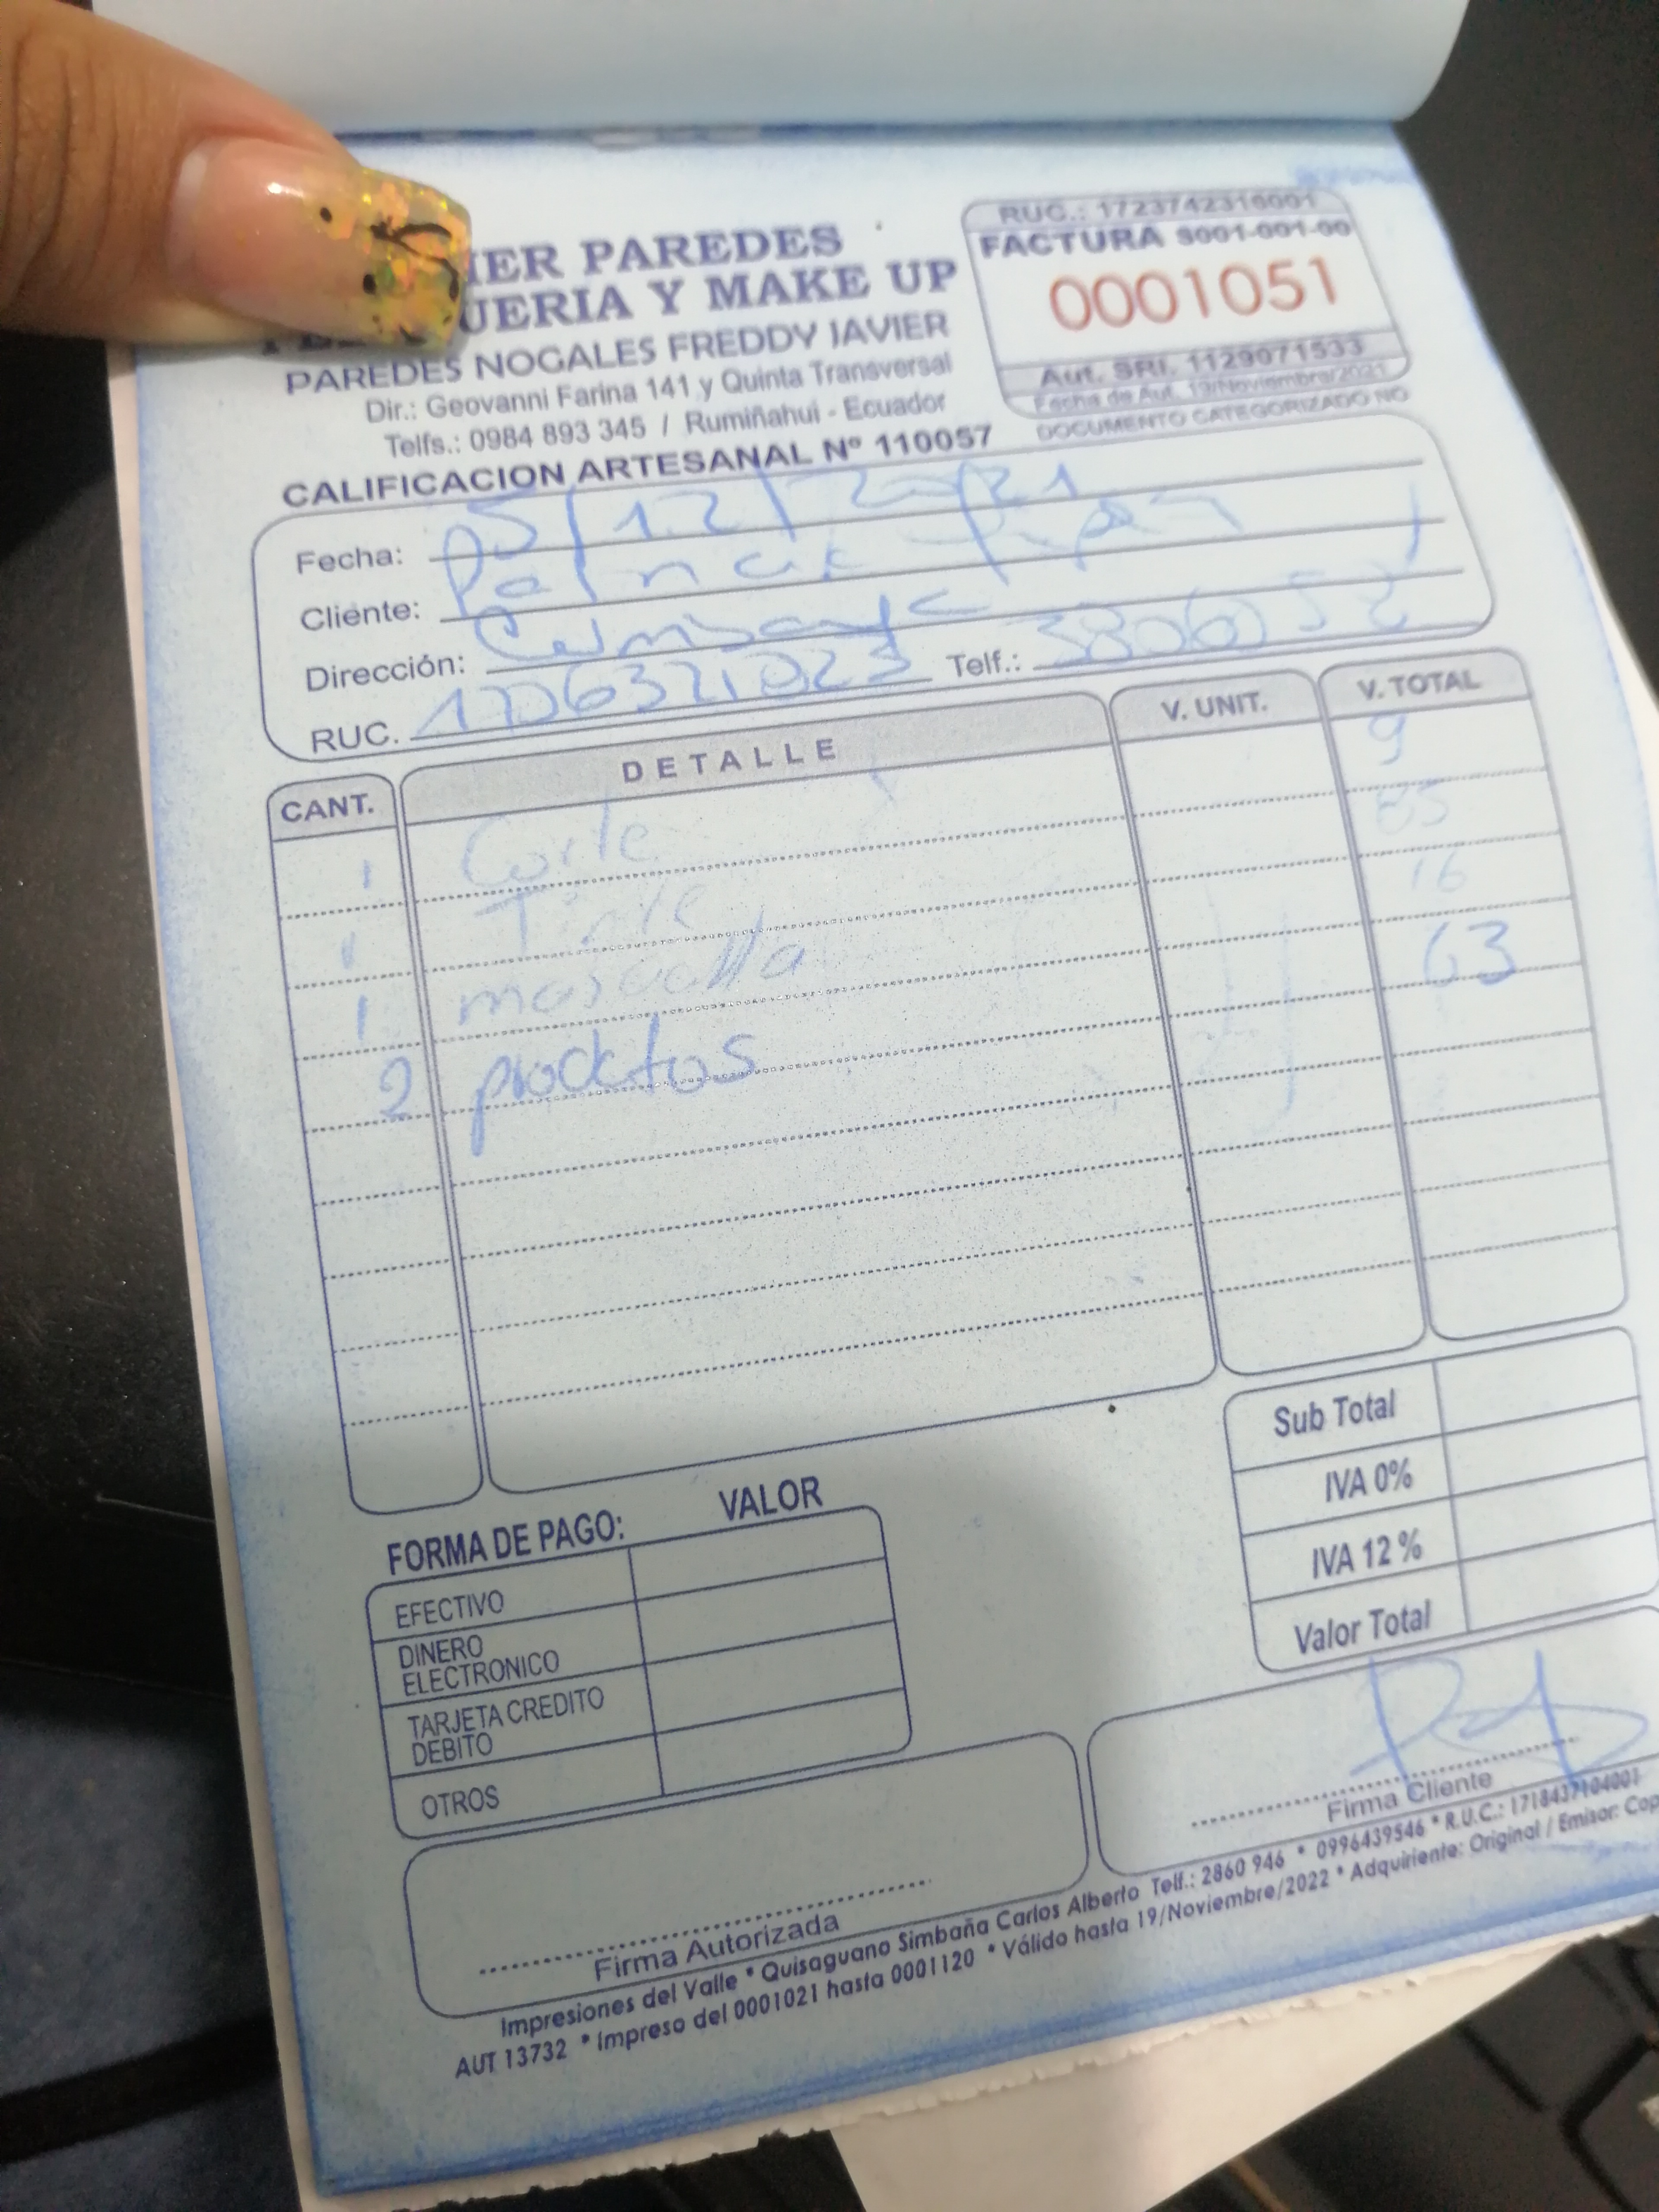 IER PAREDES
UERIA Y MAKE UP
PAREDES NOGALES FREDDY JAVIER
Dir.: Geovanni Farina 141 y Quinta Transversal
Telfs.: 0984 893 345 / Rumiñahui - Ecuador
CALIFICACION ARTESANAL Nº 110057
RUC.: 1723742316001
FACTURA S001-001-00
0001051
Aut. SRI. 1129071533
Fecha de Aut. 19/Noviembre/2021
DOCUMENTO CATEGORIZADO NO
Fecha: 5/12/2021
Cliente:
Dirección:
RUC. 1706321023 Telf.:
CANT. DETALLE V. UNIT. V. TOTAL
1 Corte 9
1 Tinte
1 mascarilla 16
2 productos 63
Sub Total
IVA 0%
IVA 12 %
Valor Total
FORMA DE PAGO: VALOR
EFECTIVO
DINERO
ELECTRONICO
TARJETA CREDITO
DEBITO
OTROS
Firma Autorizada
Firma Cliente
Impresiones del Valle * Quisaguano Simbaña Carlos Alberto Telf.: 2860 946 * 0996439546 * R.U.C.: 1718437104001
AUT 13732 * Impreso del 0001021 hasta 0001120 * Válido hasta 19/Noviembre/2022 * Adquiriente: Original / Emisor: Cop